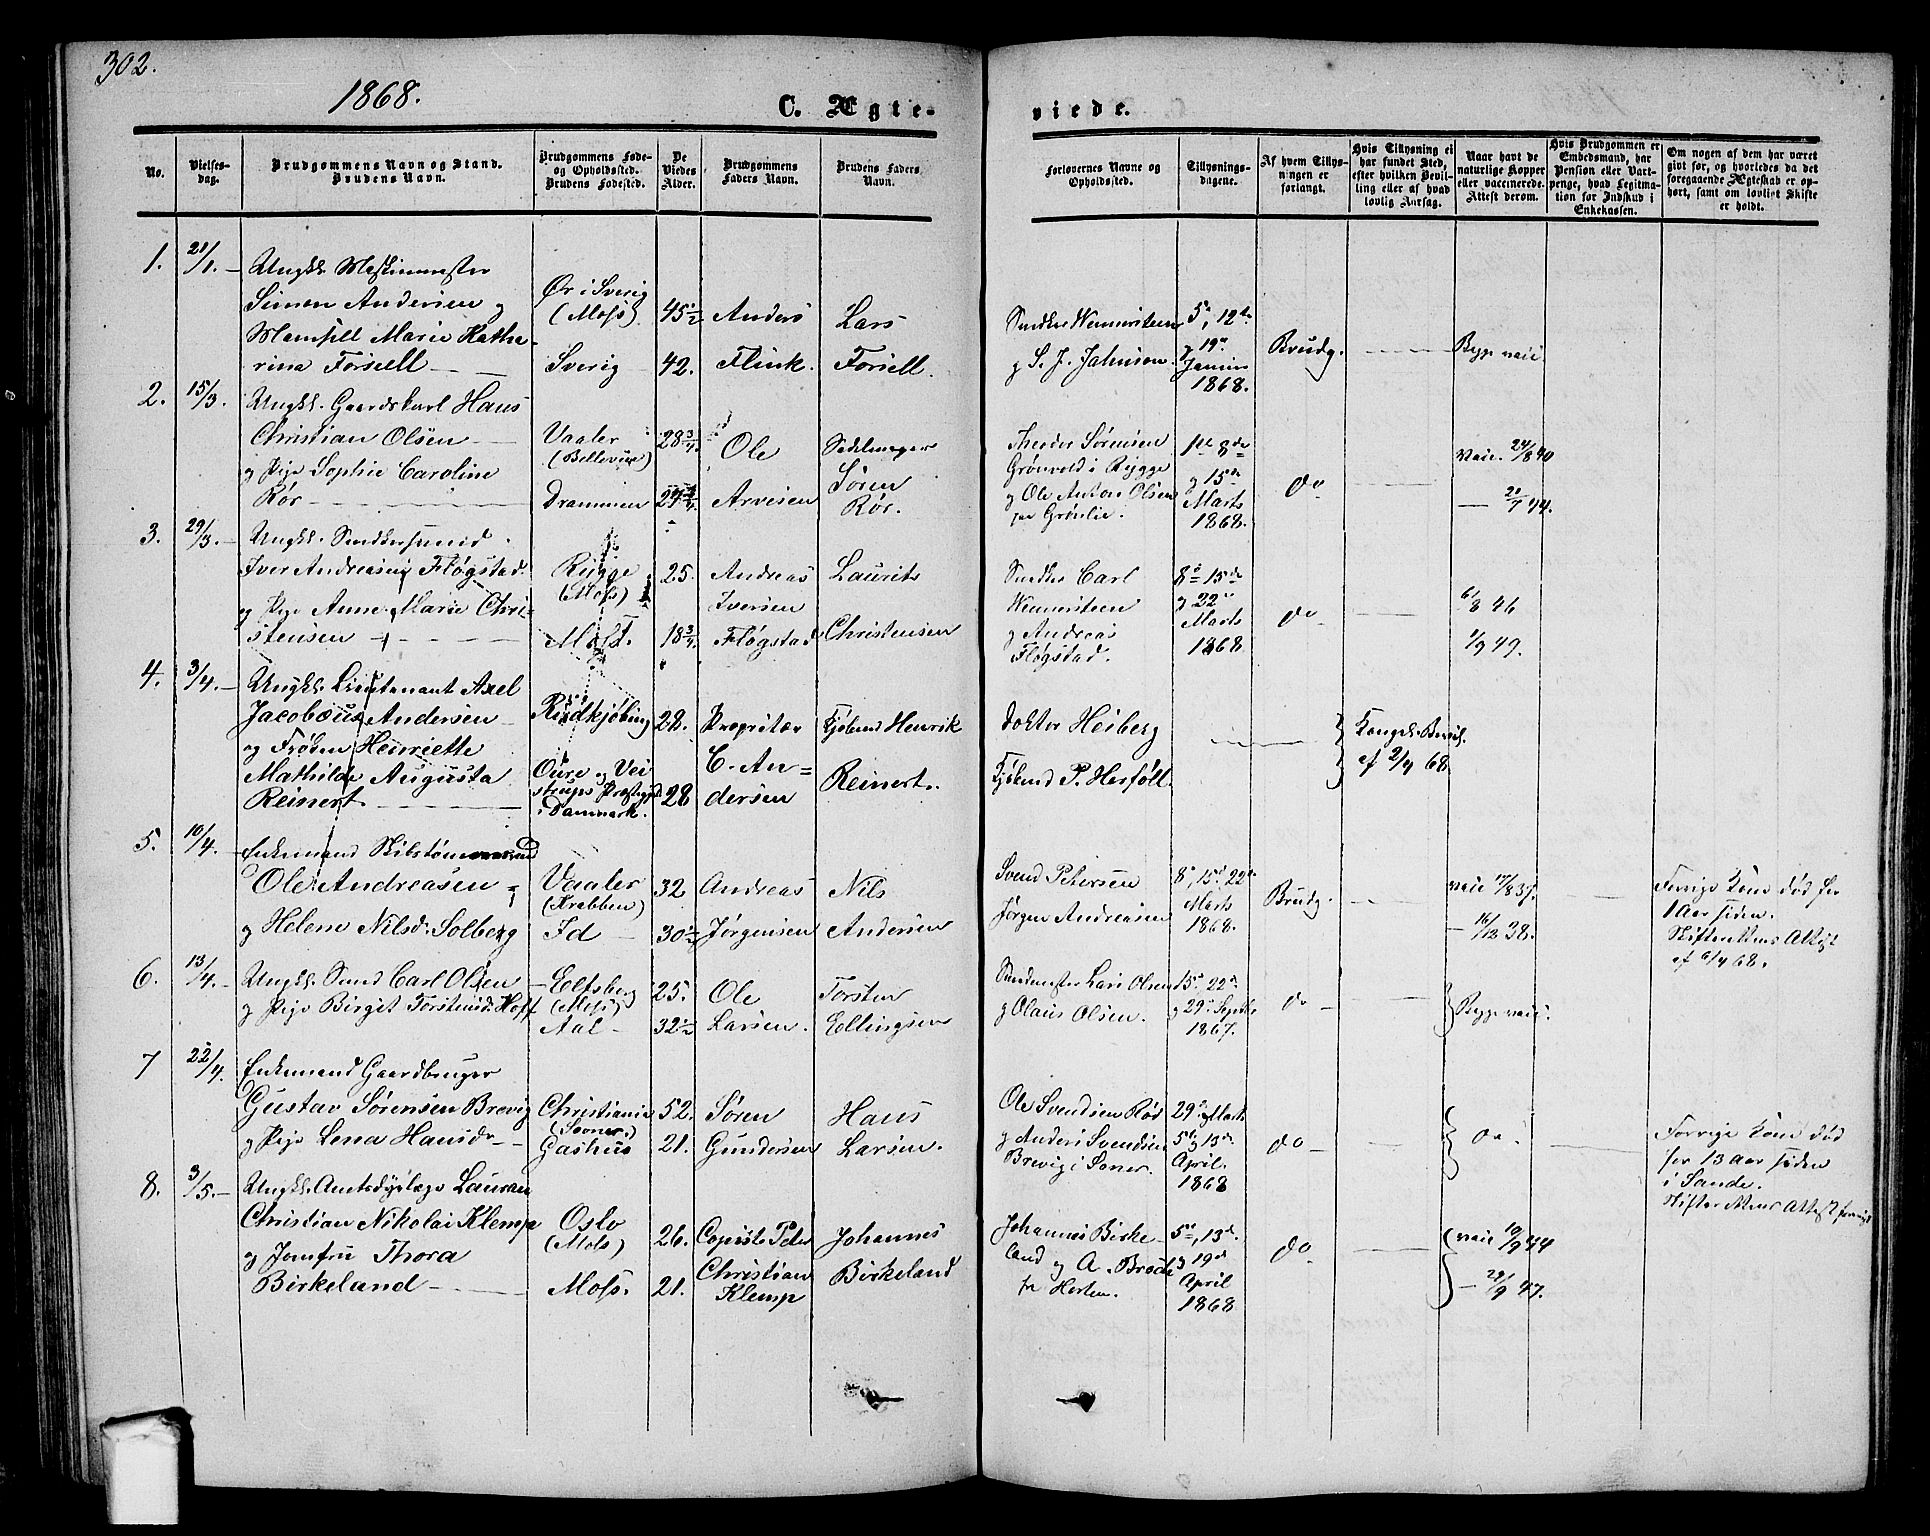 302.
1868.
C. Ægte-
viede.
No.
Vielses-
dag.
Brudgommens Navn og Stand.
Brudens Navn.
Brudgommens Føde-
og Opholdssted.
Brudens Fødested.
De
Viedes
Alder.
Brudgommens
Faders Navn.
Brudens Faders
Navn.
Forlovernes Navne og
Opholdssted.
Tillysnings-
dagene.
Af hvem Tillys-
ningen er
forlangt.
Hvis Tillysning ei
har fundet Sted,
efter hvilken Bevil-
ling eller af hvad
lovlig Aarsag.
Naar havt de
naturlige Kopper
eller vaccinerede.
Attest derom.
Hvis Brudgommen er
Embedsmand, har
Pension eller Vart-
penge, hvad Legitima-
tion for Indskud i
Enkekassen.
Om nogen af dem har været
gift før, og hvorledes da det
foregaaende Ægteskab er op-
hørt, samt om lovligt Skifte
er holdt.
1. 21/1. Ungkl. Maskinmester
Simon Andersen og
Mamsell Marie Katha-
rina Forsell
Ør i Sverig
(Moss)
Sverig
45 1/2
42.
Anders
Flink.
Lars
Forsell.
Snedker Wennersteen
og S. J. Jahnsen.
5te, 12te
og 19de
Januar
1868.
Brudg.
Begge vacc.
2. 15/3. Ungkl. Gaardskarl Hans
Christian Olsen
og Pige Sophie Caroline
Rør
Vaaler
(Bellevue)
Drammen
28 3/4
Ole
Arvesen
Sadelmager
Søren
Rør.
Theodor Sørensen
Grønvold i Rygge
og Ole Anton Olsen
fra Grønlie.
1ste 8de
og 15de
Marts
1868.
do
vacc. 24/8 40
3. 29/3. Ungkl. Snedkersvend
Iver Andreasen Fløgstad
og Pige Anne Marie Chri-
stensen
Rygge
(Moss)
Moss.
25.
18 3/4.
Andreas
Iversen
Fløgstad
Laurits
Christensen
Snedker Carl
Wennersteen
og Andreas
Fløgstad.
8de 15de
og 22de
Marts
1868
do
6/8 46
1/9 49.
4. 3/4. Ungkl. Lieutenant Axel
Jacobæus Andersen
og Frøken Henriette
Mathilde Augusta
Reinert
Rudkjøbing
Oure og Vei-
strups Præstegjd.
i Danmark.
28.
28
Proprietær
C. An-
dersen
Kjøbmd Henrik
Reinert.
Doktor Heiberg
Kjøbmd P. Herføll.
Kongel. Bevil.
af 2/4 68.
5. 10/4. Enkemand Skibstømmermand
Ole Andreasen
og Helene Nilsd. Solberg
Vaaler
(Krabben)
Id
32
30 1/2
Andreas
Jørgensen
Nils
Andersen
Svend Petersen
Jørgen Andreasen
8de, 15de, 22de
Marts
1868.
Brudg.
16/12 38.
Forrige Kone død for
1 Aar siden.
Skifterettens Attest
af 6/4 68.
6. 13/4. Ungkl. Smed Carl Olsen
og Pige Birget Torstensd. Hoff
Elfsberg
(Moss)
Aal
25.
32 1/2
Ole
Larsen.
Torsten
Ellingsen
Lars Olsen
og Olaus Olsen.
15de 22de
og 29de Septbr.
1867.
do
Begge vacc.
7 22/4. Enkemand Gaardbruger
Gustav Sørensen Brevig
og Pige Lena Hansdr
Christiania
(Sooner.)
Gashus
52.
21.
Søren
Gundersen
Hans
Larsen.
Ole Svendsen Rød
og Anders Svendsen
Brevig i Soner.
29de Marts
5te og 13de
April.
1868
do
do.
Forrige Kone død
for 13 Aar siden
i Sande.
Skifterettens Attest
8. 3/5. Ungkl. Amtsdyrlæge Lauran
Christian Nikolai Klemp
og Jomfru Thora
Birkeland
Oslo
(Moss)
Moss.
26.
21.
Copiist Peter
Christian
Klemp
Johannes
Birkeland
Johannes Birke-
land og A. Broch
fra Horten.
5te, 13de
og 19de
April
1868
do
vacc 19/9 44
29/9 47.